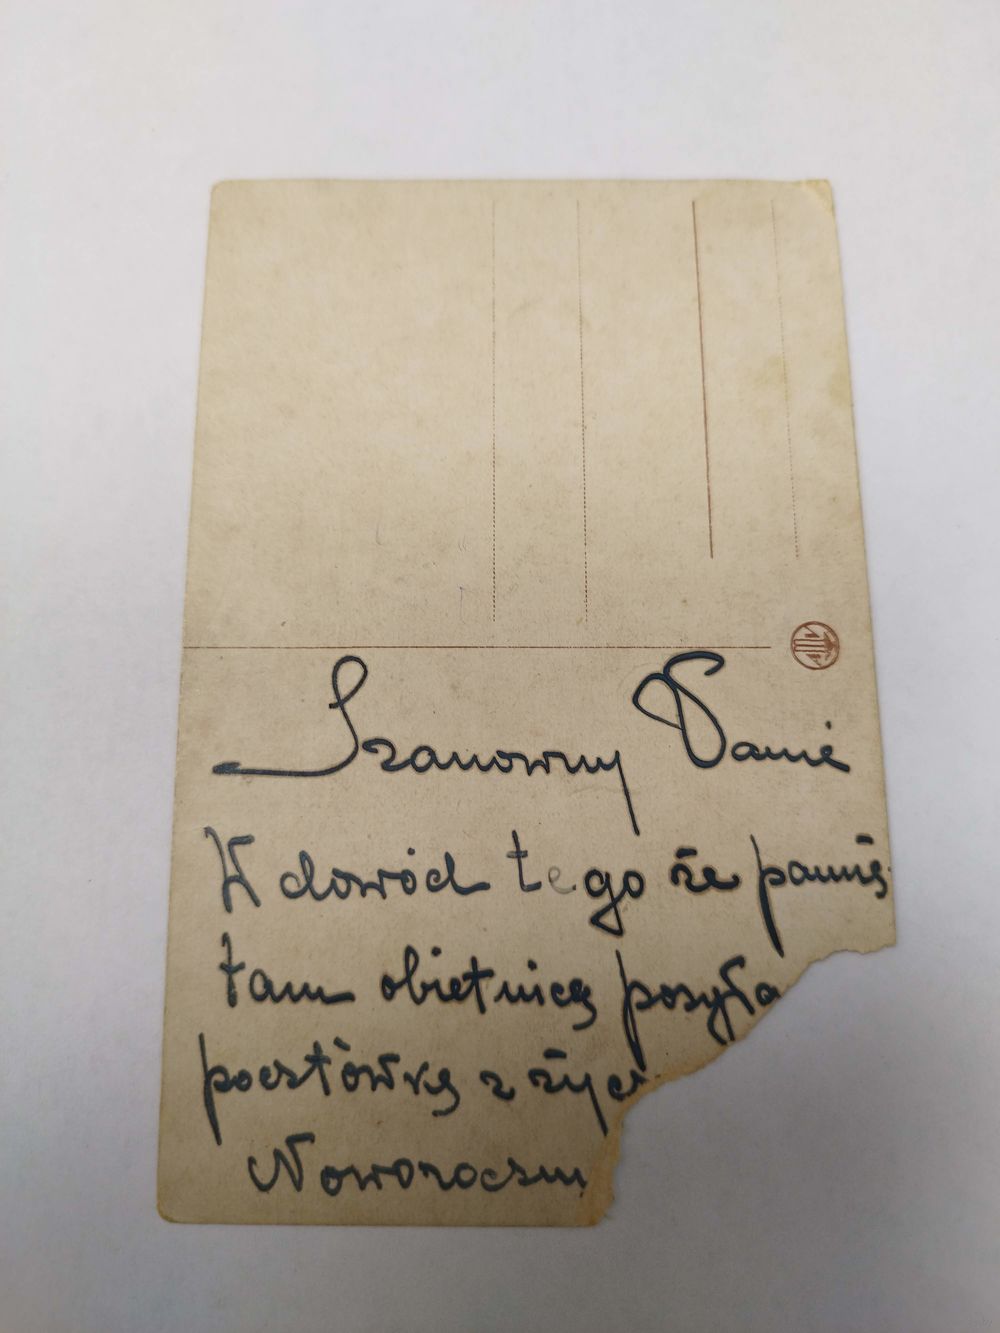 Szanowny Panie
W dowód tego że pamię
tam obietnicę posyła
pocztówkę z życ
Noworoczn